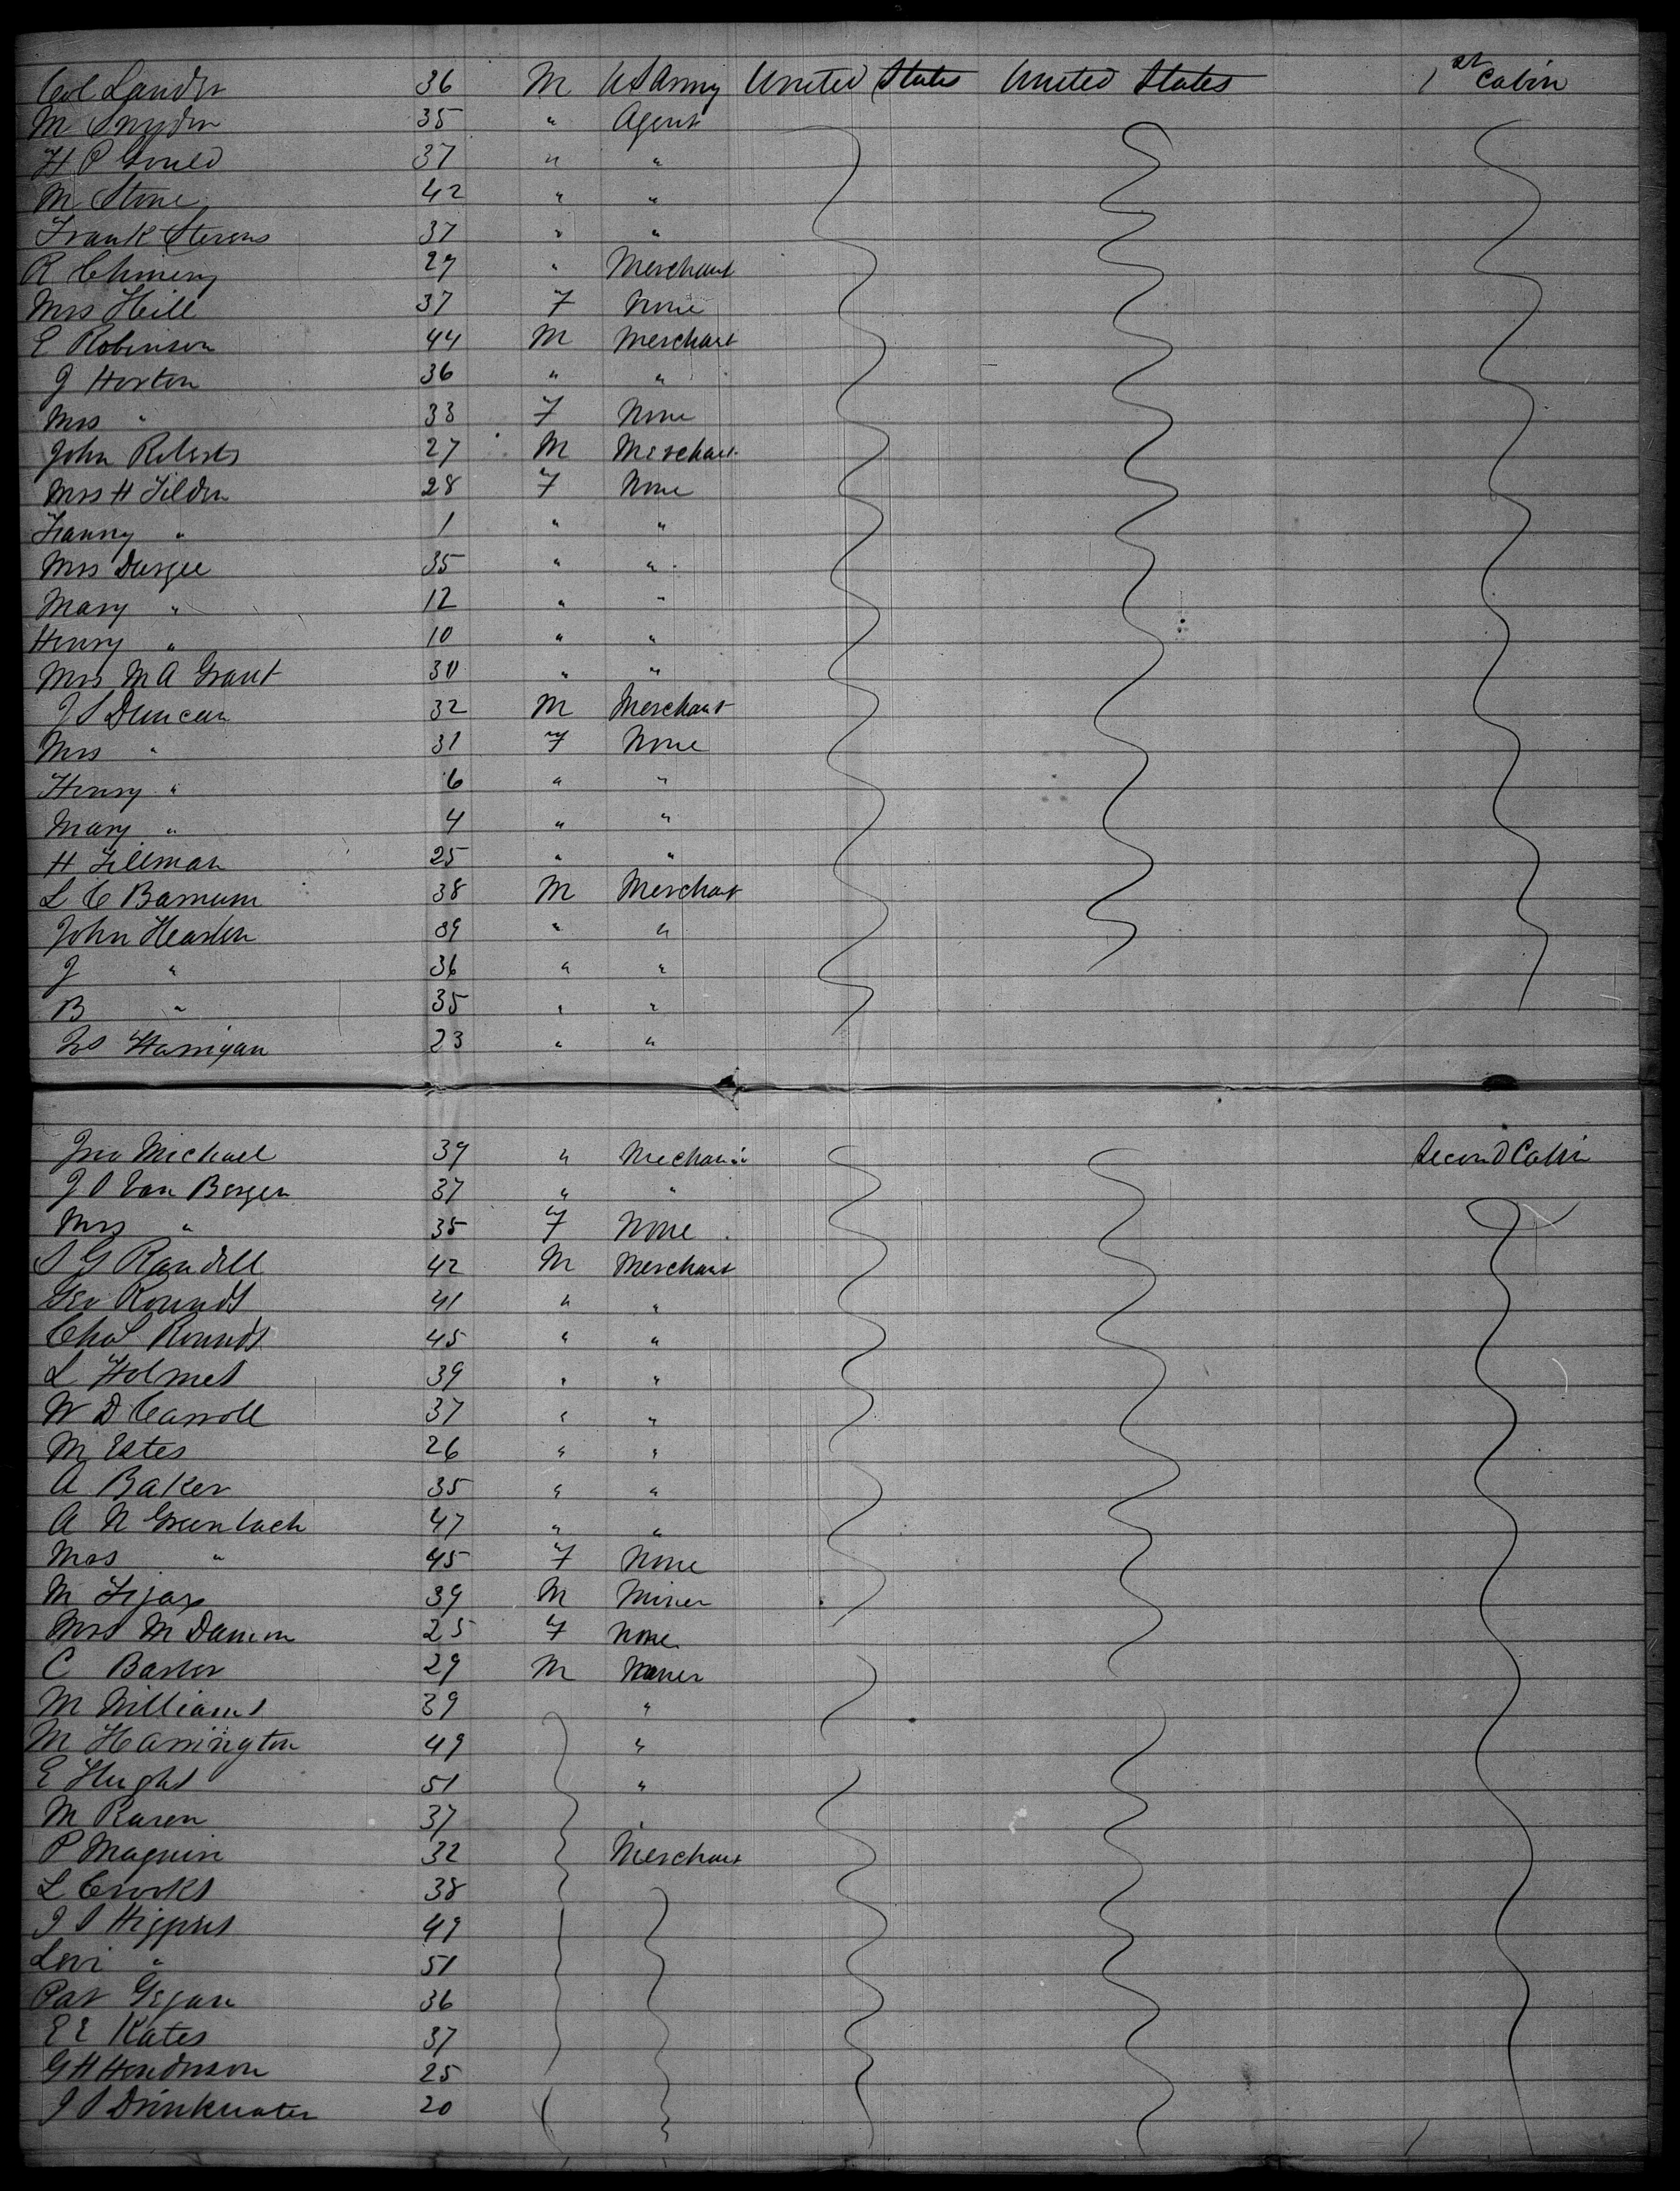 Col Lander 36 M US Army United States United States 1st Cabin
M Snyder 35 " Agent
H P Gould 37 " "
M Stone 42 " "
Frank Stevens 37 " "
R Chinery 29 " Merchant
Mrs Hill 37 F None
E Robinson 44 M Merchant
J Horton 36 " "
Mrs " 33 F None
John Roberts 27 M Merchant
Mrs H Tilden 28 F None
Fanny " 1 " "
Mrs Durgee 35 " "
Mary " 12 " "
Henry " 10 " "
Mrs M A Grant 30 " "
J S Duncan 32 M Merchant
Mrs " 31 F None
Henry " 6 " "
Mary " 4 " "
H Tillman 25 " "
L C Barnum 38 M Merchant
John Hearden 39 " "
J " 36 " "
B " 35 " "
Harrigan 23 " "
Jno Michael 39 " Mechanic Second Cabin
J S Van Bergen 37 " "
Mrs " 35 F None
S G Randell 42 M Merchant
Geo Rounds 41 " "
Chas Rounds 45 " "
L Holmes 39 " "
W D Carroll 37 " "
M Estes 26 " "
A Baker 35 " "
A N Greenbach 47 " "
Mrs " 45 F None
M 39 M Miner
Mrs M Damon 25 F None
C Barber 29 M Miner
M Williams 39 "
M Harrington 49 "
E Hughs 51 "
M Rason 37 "
P Maguin 32 Merchant
L Crooks 38
J S Higgins 49
Levi " 51
Pat Gegan 36
E E Kates 37
G H Henderson 25
J S Drinkwater 20